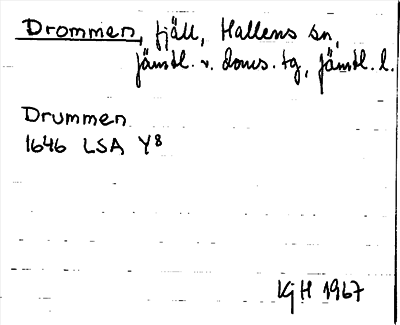 Drommen, fjäll, Hallens sn,
jämtl. v. doms. tg, jämtl. l.
Drummen
1646 LSA Y8
KGH 1967